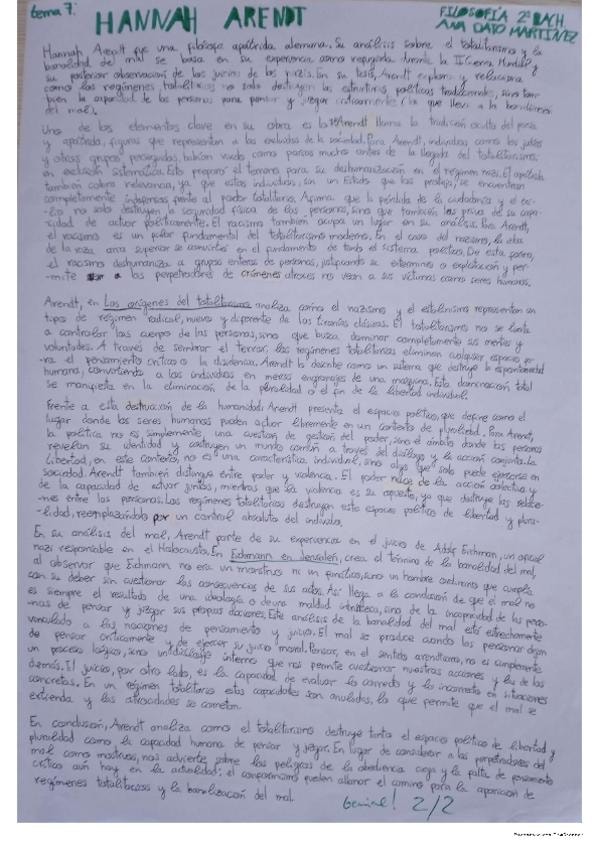 tema 7.
HANNAH ARENDT
FILOSOFÍA 2º BACH
ANA DATO MARTÍNEZ
Hannah Arendt fue una filósofa apátrida alemana. Su análisis sobre el totalitarismo y la
banalidad del mal se basa en su experiencia como refugiada durante la II Guerra Mundial y
su posterior observación de los juicios de los nazis. En su tesis, Arendt explora y relaciona
como los regímenes totalitarios no solo destruyen las estructuras políticas tradicionales, sino tam-
bién la capacidad de las personas para pensar y juzgar críticamente (lo que lleva a la banalización
del mal).
Uno de los elementos clave en su obra es la Arendt llama la tradición oculta del paria
y apátrida, figuras que representan a los excluidos de la sociedad. Para Arendt, individuos como los judíos
y otros grupos perseguidos, habían vivido como parias mucho antes de la llegada del totalitarismo.
en exclusión sistemática. Esto preparó el terreno para su deshumanización en el régimen nazi. El apátrida
también cobra relevancia, ya que estos individuos, sin un Estado que los proteja, se encuentran
completamente indefensos frente al poder totalitario. Afirma que la pérdida de la ciudadanía y el exi-
-lio no solo destruyen la seguridad física de las personas, sino que también les priva de su capa-
cidad de actuar políticamente. El racismo también ocupa un lugar en su análisis. Para Arendt,
el racismo es un pilar fundamental del totalitarismo moderno. En el caso del nazismo, la idea
de la raza aria superior se convirtió en el fundamento de todo el sistema político. De esta forma,
el racismo deshumaniza a grupos enteros de personas, justificando su exterminio o explotación y per-
-mite a los perpetradores de crímenes atroces no vean a sus víctimas como seres humanos.
Arendt, en Los orígenes del totalitarismo analiza como el nazismo y el estalinismo representan un
tipos de régimen radical, nuevo y diferente de las tiranías clásicas. El totalitarismo no se limita
a controlar los cuerpos de las personas, sino que busca dominar completamente sus mentes y
voluntades. A través de sembrar el terror, los regímenes totalitarios eliminan cualquier espacio pa-
-ra el pensamiento crítico o la disidencia. Arendt lo describe como un sistema que destruye la espontaneidad
humana, convirtiendo a los individuos en meros engranajes de una máquina. Esta dominación total
se manifiesta en la eliminación de la pluralidad o el fin de la libertad individual.
Frente a esta destrucción de la humanidad, Arendt presenta el espacio político, que define como el
lugar donde los seres humanos pueden actuar libremente en un contexto de pluralidad. Para Arendt,
la política no es simplemente una cuestión de gestión del poder, sino el ámbito donde las personas
revelan su identidad y construyen un mundo común a través del diálogo y la acción conjunta. La
libertad, en este contexto, no es una característica individual, sino algo que solo puede ejercerse en
sociedad. Arendt también distingue entre poder y violencia. El poder nace de la acción colectiva y
de la capacidad de actuar juntos, mientras que la violencia es su opuesto, ya que destruye las relacio-
-nes entre las personas. Los regímenes totalitarios destruyen este espacio político de libertad y plura-
-lidad, reemplazándolo por un control absoluto del individuo.
En su análisis del mal, Arendt parte de su experiencia en el juicio de Adolf Eichman, un oficial
nazi responsable en el Holocausto. En Eichmann en Jerusalén, crea el término de la banalidad del mal,
al observar que Eichmann no era un monstruo ni un fanático, sino un hombre ordinario que cumplía
con su deber sin cuestionar las consecuencias de sus actos. Así llega a la conclusión de que el mal no
es siempre el resultado de una ideología o de una maldad intrínseca, sino de la incapacidad de las perso-
-nas de pensar y juzgar sus propias acciones. Este análisis de la banalidad del mal está estrechamente
vinculado a las nociones de pensamiento y juicio. El mal se produce cuando las personas dejan
de pensar críticamente y de ejercer su juicio moral. Pensar, en el sentido arendtiano, no es simplemente
un proceso lógico, sino un diálogo interno que nos permite cuestionar nuestras acciones y las de los
demás. El juicio, por otro lado, es la capacidad de evaluar lo correcto y lo incorrecto en situaciones
concretas. En un régimen totalitario estas capacidades son anuladas, lo que permite que el mal se
extienda y las atrocidades se cometan.
En conclusión, Arendt analiza como el totalitarismo destruye tanto el espacio político de libertad y
pluralidad como la capacidad humana de pensar y juzgar. En lugar de considerar a los perpetradores del
mal como monstruos, nos advierte sobre los peligros de la obediencia ciega y la falta de pensamiento
crítico aún hoy en la actualidad: el conformismo pueden allanar el camino para la aparición de
regímenes totalitarios y la banalización del mal.
Genial! 2/2